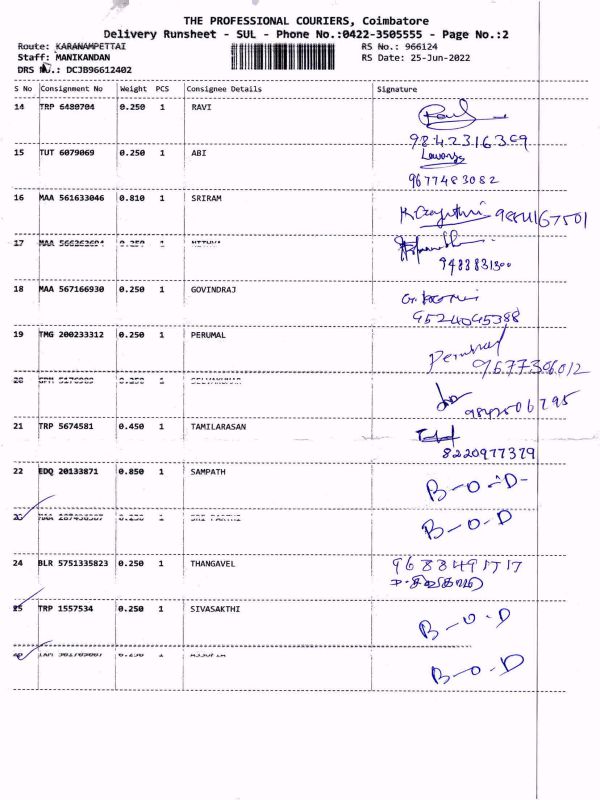 THE PROFESSIONAL COURIERS, Coimbatore
Delivery Runsheet - SUL - Phone No.:0422-3505555 - Page No.:2
Route: KARANAMPETTAI RS No.: 966124
Staff: MANIKANDAN RS Date: 25-Jun-2022
DRS No.: DCJB96612402
S No Consignment No Weight PCS Consignee Details Signature
14 TRP 6480704 0.250 1 RAVI
9842316309
15 TUT 6079069 0.250 1 ABI
9677483082
16 MAA 561633046 0.810 1 SRIRAM
9884167501
17 MAA 0.250 1
9488831300
18 MAA 567166930 0.250 1 GOVINDRAJ
9524095388
19 TMG 200233312 0.250 1 PERUMAL
Perumal
9677396012
0.250 1 SELVAKUMAR
9842506795
21 TRP 5674581 0.450 1 TAMILARASAN
8220977379
22 EDQ 20133871 0.850 1 SAMPATH B-O-D-
23 MAA 0.250 1 SRI B-O-D
24 BLR 5751335823 0.250 1 THANGAVEL
25 TRP 1557534 0.250 1 SIVASAKTHI B-O-D
0.250 1 B-O-D